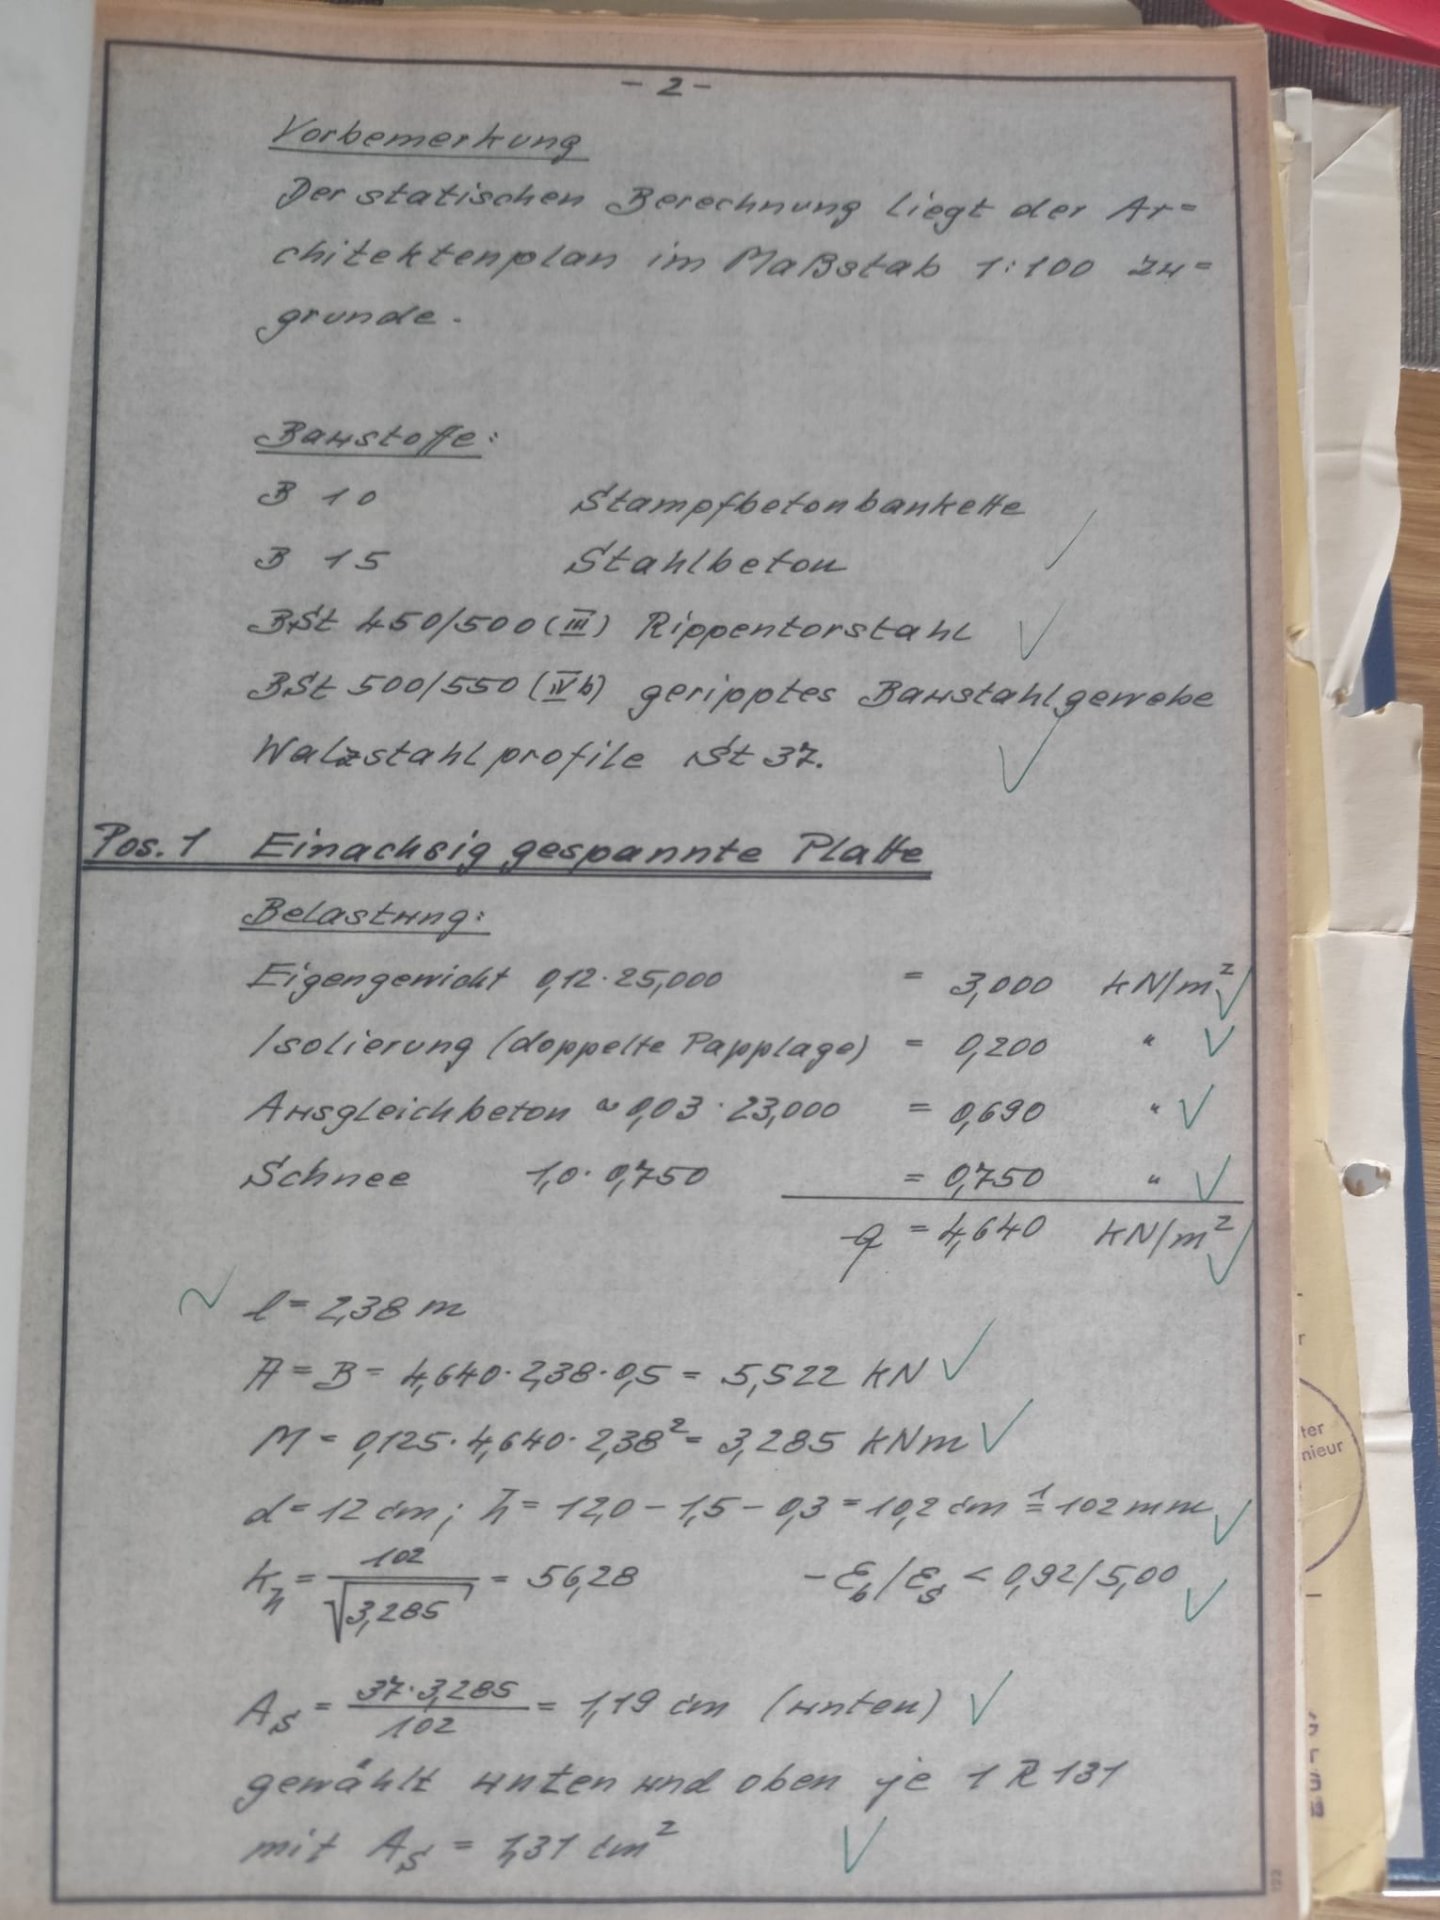 - 2 -
Vorbemerkung
Der statischen Berechnung liegt der Ar=
chitektenplan im Maßstab 1:100 zu=
grunde.
Baustoffe:
B 10 Stampfbetonbankette
B 15 Stahlbeton
BSt 450/500 (III) Rippentorstahl
BSt 500/550 (IVb) geripptes Baustahlgewebe
Walzstahlprofile St 37.
Pos. 1 Einachsig gespannte Platte
Belastung:
Eigengewicht 0,12 · 25,000 = 3,000 kN/m²
Isolierung (doppelte Papplage) = 0,200 "
Ausgleichbeton ~ 0,03 · 23,000 = 0,690 "
Schnee 1,0 · 0,750 = 0,750 "
q = 4,640 kN/m²
l = 2,38 m
A = B = 4,640 · 2,38 · 0,5 = 5,522 kN
M = 0,125 · 4,640 · 2,38² = 3,285 kNm
d = 12 cm; h = 12,0 - 1,5 - 0,3 = 10,2 cm ≙ 102 mm
kh = 102 / √3,285 = 56,28 -εb/εs < 0,92/5,00
As = 37 · 3,285 / 102 = 1,19 cm (unten)
gewählt unten und oben je 1 R 131
mit As = 1,31 cm²
ter
nieur